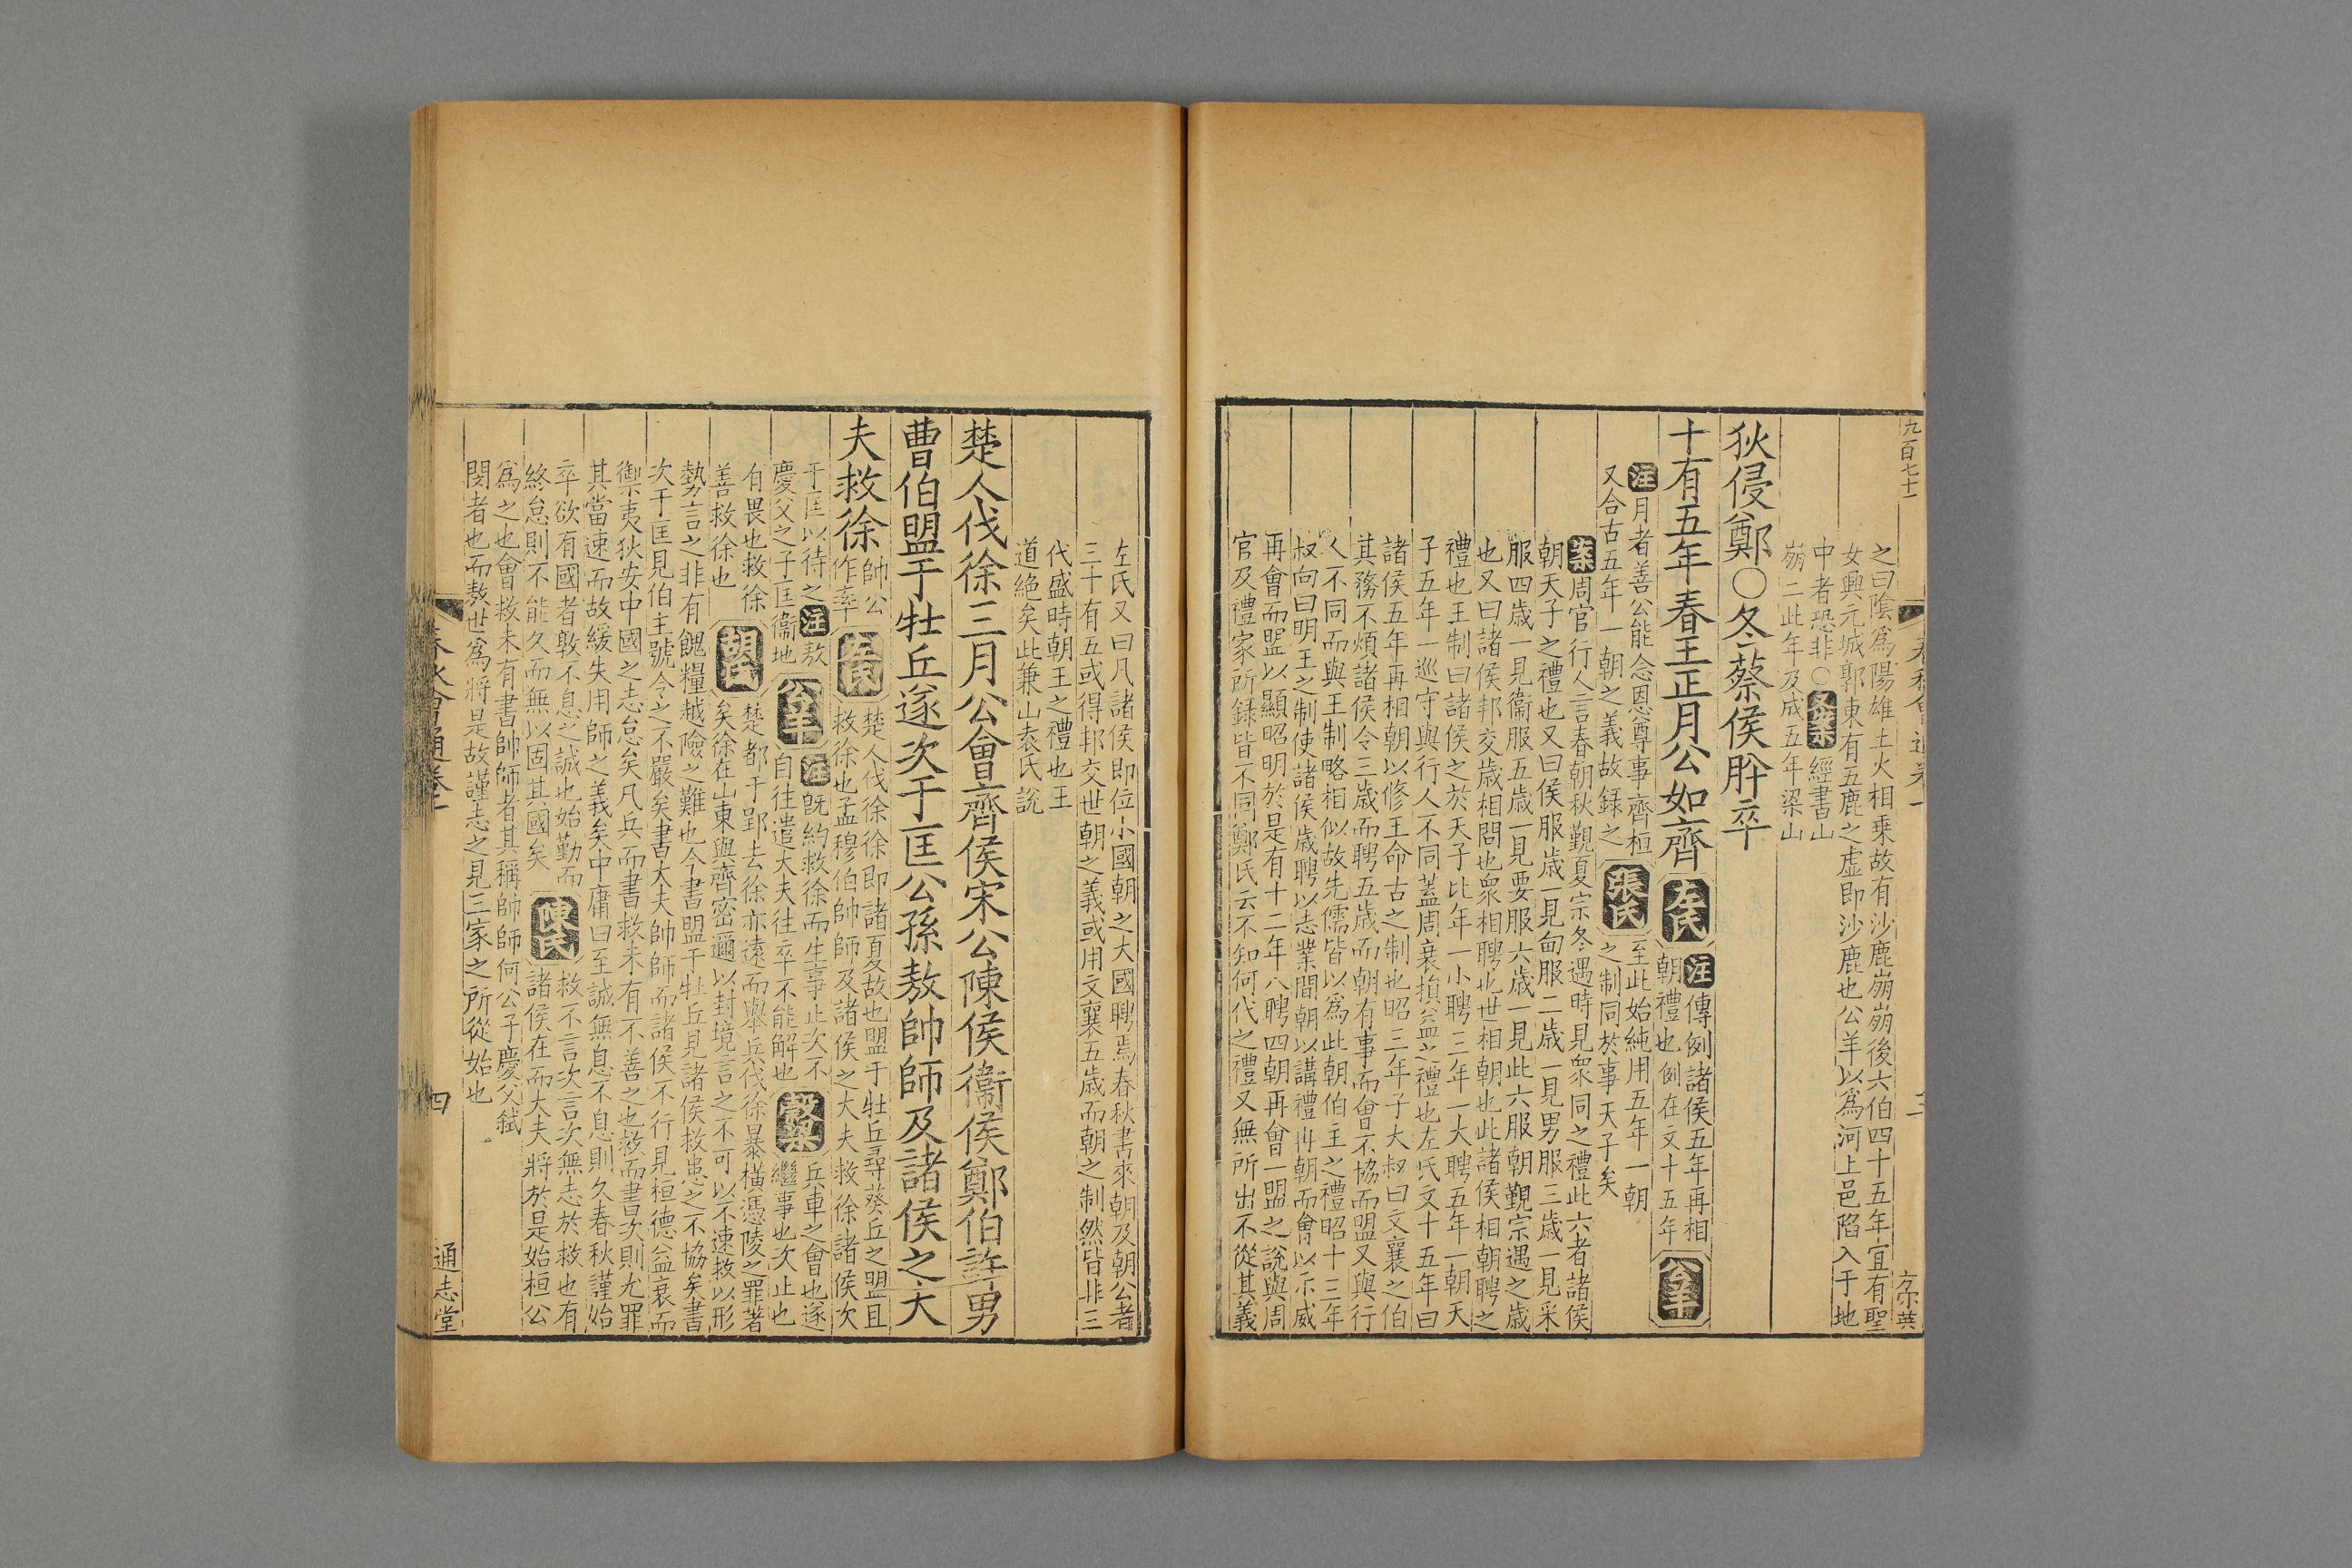 九百七十一
方尓英
之曰陰爲陽雄土火相乗故有沙鹿崩崩後六伯四十五年宜有聖
女興元城郭東有五鹿之虚即沙鹿也公羊以爲河上邑陷入于地
中者恐非〇
經書山
崩二此年及成五年梁山
狄侵鄭〇冬蔡侯肸卒
十有五年春王正月公如齊 左氏 注 傳例諸侯五年再相
朝禮也例在文十五年 公羊
注 月者善公能念恩尊事齊桓
又合古五年一朝之義故録之 張氏 至此始純用五年一朝
之制同於事天子矣
案 周官行人言春朝秋覲夏宗冬遇時見衆同之禮此六者諸侯
朝天子之禮也又曰侯服歳一見甸服二歳一見男服三歳一見采
服四歳一見衞服五歳一見要服六歳一見此六服朝覲宗遇之歳
也又曰諸侯邦交歳相問也衆相聘也世相朝也此諸侯相朝聘之
禮也王制曰諸侯之於天子比年一小聘三年一大聘五年一朝天
子五年一巡守與行人不同蓋周衰損益之禮也左氏文十五年曰
諸侯五年再相朝以修王命古之制也昭三年子大叔曰文襄之伯
其務不煩諸侯令三歳而聘五歳而朝有事而會不協而盟又與行
人不同而與王制略相似故先儒皆以爲此朝伯主之禮昭十三年
叔向曰明王之制使諸侯歳聘以志業間朝以講禮再朝而會以示威
再會而盟以顯昭明於是有十二年八聘四朝再會一盟之說與周
官及禮家所録皆不同鄭氏云不知何代之禮又無所出不從其義
左氏又曰凡諸侯即位小國朝之大國聘焉春秋書來朝及朝公者
三十有五或得邦交世朝之義或用文襄五歳而朝之制然皆非三
代盛時朝王之禮也王
道絶矣此兼山袁氏說
楚人伐徐三月公會齊侯宋公陳侯衞侯鄭伯許男
曹伯盟于牡丘遂次于匡公孫敖帥師及諸侯之大
夫救徐 帥公作率 左氏 楚人伐徐徐即諸夏故也盟于牡丘尋葵丘之盟且
救徐也孟穆伯帥師及諸侯之大夫救徐諸侯次
于匡以待之 注 敖
慶父之子匡衞地 公羊 注 既約救徐而生事止次不
自往遣大夫往卒不能解也 穀梁 兵車之會也遂
繼事也次止也
有畏也救徐
善救徐也 胡氏 楚都于郢去徐亦遠而舉兵伐徐暴橫憑陵之罪著
矣徐在山東與齊密邇以封境言之不可以不速救以形
勢言之非有餽糧越險之難也今書盟于牡丘見諸侯救患之不協矣書
次于匡見伯主號令之不嚴矣書大夫帥師而諸侯不行見桓德益衰而
禦夷狄安中國之志怠矣凡兵而書救未有不善之也救而書次則尤罪
其當速而故緩失用師之義矣中庸曰至誠無息不息則久春秋謹始
卒欲有國者敦不息之誠也始勤而
終怠則不能久而無以固其國矣 陳氏 救不言次言次無志於救也有
諸侯在而大夫將於是始桓公
爲之也會救未有書帥師者其稱帥師何公子慶父弑
閔者也而敖世爲將是故謹志之見三家之所從始也
四
通志堂